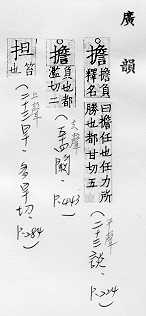 廣韻
擔
擔負曰擔任也任力所
釋名勝也都甘切五
平聲
(二十三談. P.224)
擔
負也都
濫切二
去聲
(五四闞. P.443)
担
笪
也
上聲
(二十三旱. 多旱切. P.284)